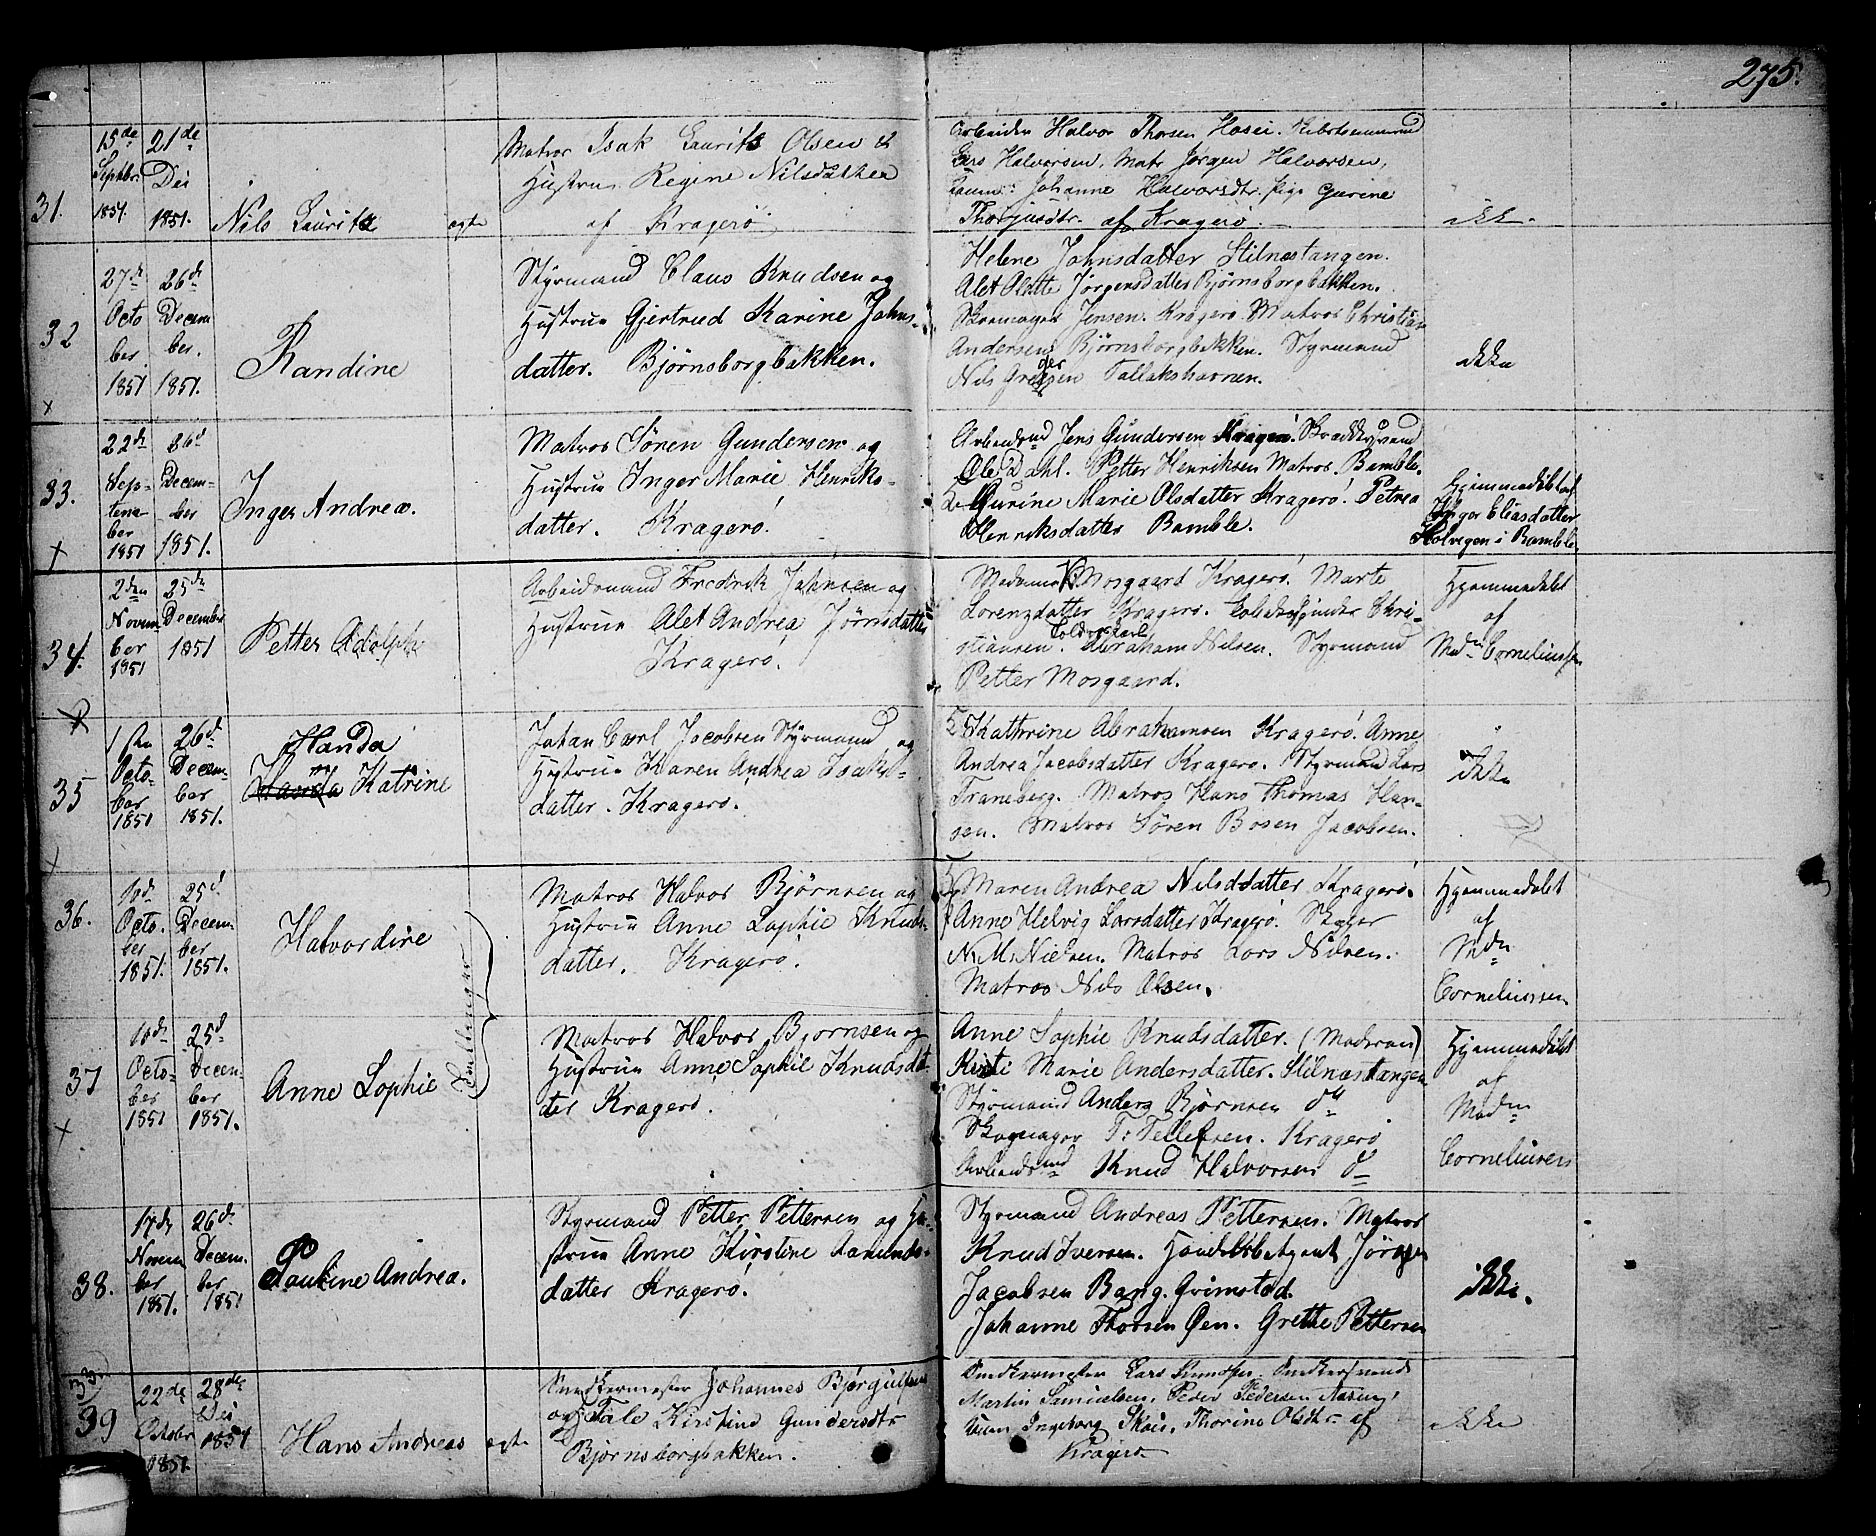 275.
31.
15de
Septbr.
1851.
21de
Dec
1851.
Nils Lauritz
ægte
Matros Isak Lauritz Olsen &
Hustru Regine Nilsdatter
af Kragerø
Arbeider Halvor Thorsen
Lars Halvorsen, Matr Jørgen Halvorsen,
Johanne Halvorsdtr. pige Gurine
af Kragerø.
ikke.
32
27de
Octo
ber
1851
26de
Decem
ber.
1851.
Randine
Styrmand Claus Knudsen og
Hustrue Gjertrud Karine Johns-
datter. Bjørnsborgbakken.
Helene Johnsdatter Stilnæstangen.
Alet Olette Jørgensdatter Bjørnsborgbakken.
Skomager Jensen. Kragerø. Matros Christian
Andersen, Bjørnsborgbakken. Styrmand
Nils Tallakshavnen.
ikke
x
33.
22de
Sep-
tem
ber
1851
26d
Decem-
ber
1851.
Inger Andrea.
Matros Søren Gundersen og
Hustrue Inger Marie Henriks-
datter. Kragerø.
Arbeidsmd Jens Gundersen Kragerø. Skrædersvend
Ole Dahl. Petter Henriksen Matros. Bamble.
Gurine Marie Olsdatter Kragerø. Petrea
Henriksdatter Bamble.
Hjemmedøbt af
Inger Eliasdatter
i Bamble.
x
34.
2den
Novem
ber
1851
25de
December
1851
Petter Adolph
Arbeidsmand Fredrik Johnsen og
Hustrue Alet Andrea Jørnsdatter
Kragerø.
Madame Mosgaard Kragerø. Marte
Lorenzdatter Kragerø. Chri-
stiansen. Abraham Nilsen. Styrmand
Petter Mosgaard.
Hjemmedøbt
af
Madm Corneliussen
35
1ste
Octo-
ber
1851
26d
Decem-
ber
1851.
Handa
Katrine
Johan Carl Jacobsen Styrmand og
Hustrue Karen Andrea Isaks-
datter. Kragerø.
Kathrine Abrahamsen Kragerø. Anne
Andrea Jacobsdatter Kragerø. Styrmand Lars
Franeberg. Matros Hans Thomas Han-
sen. Matros Søren Bosen Jacobsen.
ikke
x
36.
10d
Octo-
ber
1851.
25d
Decem-
ber
1851.
Halvordine
Tvillinger
Matros Halvor Bjørnsen og
Hustrue Anne Sophie Knuds-
datter. Kragerø.
Maren Andrea Nilsdatter Kragerø.
Anne Helvig Larsdatter Kragerø.
N. M. Nielsen. Matros Lars Nilsen.
Matros Nils Olsen.
Hjemmedøbt
af
Mdm
Corneliussen
37
10de
Octo-
ber
1851
25d
Decem-
ber
1851.
Anne Sophie
Matros Halvor Bjørnsen og
Hustrue Anne Sophie Knudsdat-
ter Kragerø.
Anne Sophie Knudsdatter. (Moderen)
Kirsti Marie Andersdatter. Stilnæstangen
Styrmand Anders Bjørnsen do
Skomager T: Tellefsen. Kragerø
Arbeidsmd Knud Halvorsen do
Hjemmedøbt
af
Madm
Corneliusen
x
38.
17de
Novem
ber
1851.
26d.
Decem-
ber
1851
Pauline Andrea.
Styrmand Petter Pettersen og Hu-
strue Anne Kirstine Aamunds-
datter Kragerø.
Styrmand Andreas Pettersen. Matros
Knud Iversen. Handelsbetjent Jørgen
Jacobsen Bang. Grimstad.
Johanne Thorsen Øen. Grethe Pettersen
ikke.
39
22de
Octobr
1851.
28de
Dec
1851
Hans Andreas
ægte
Snedkermester Johannes Bjørgulfsen
og Tale Kirstine Gundersdtr
Bjørnsborgbakken.
Snedkermester Lars Knudsen. Snedkersvend
Martin Samuelsen, Peder Pedersen
Ingeborg Thorine Olsdtr af
Kragerø
ikke